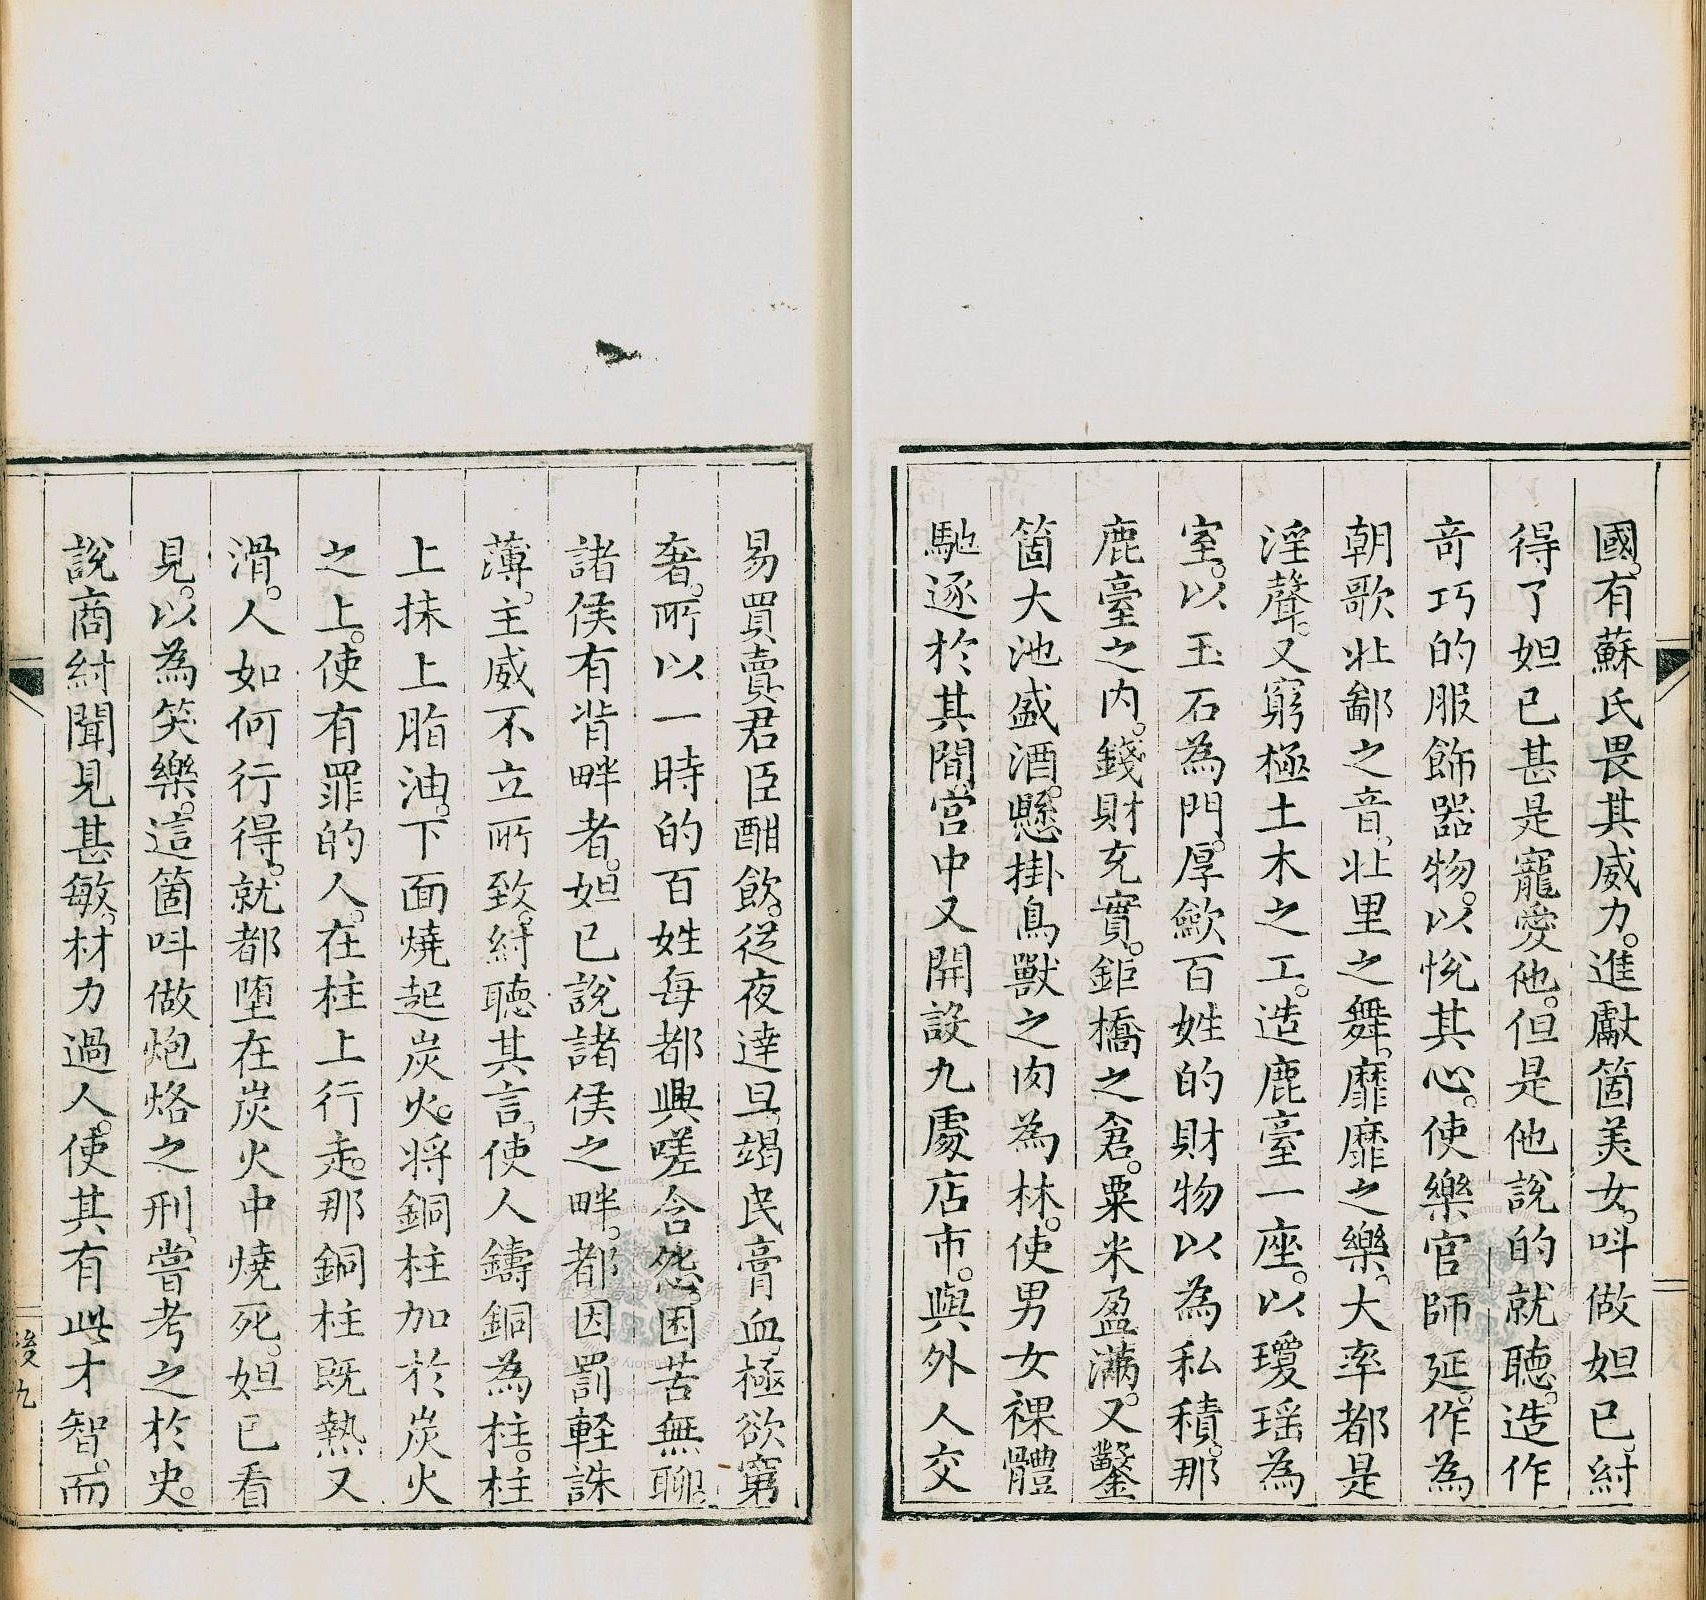 國。有蘇氏畏其威力。進獻箇美女。呌做妲已。紂
得了妲已甚是寵愛他。但是他說的就聽。造作
竒巧的服飾器物。以悅其心。使樂官師延。作為
朝歌北鄙之音。北里之舞。靡靡之樂。大率都是
淫聲。又窮極土木之工。造鹿臺一座。以瓊瑶為
室。以玉石為門。厚歛百姓的財物以為私積。那
鹿臺之内。錢財充實。鉅橋之倉。粟米盈滿。又鑿
箇大池盛酒。懸掛鳥獸之肉為林。使男女裸體
馳逐於其間。宮中又開設九處店市。與外人交
易買賣。君臣酣飲。從夜達旦。竭民膏血。極欲窮
奢。所以一時的百姓每都興嗟含怨。困苦無聊
諸侯有背畔者。妲已說諸侯之畔。都因罰軽誅
薄。主威不立所致。紂聽其言。使人鑄銅為柱。柱
上抹上脂油。下面燒起炭火。將銅柱加於炭火
之上。使有罪的人。在柱上行走。那銅柱既熱又
滑。人如何行得。就都墮在炭火中燒死。妲已看
見。以為笑樂。這箇呌做炮烙之刑。嘗考之於史。
說商紂聞見甚敏。材力過人。使其有此才智。而
後九